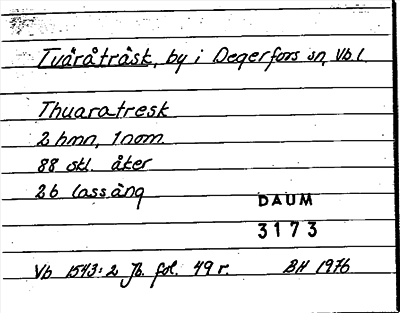 Tväråträsk, by i Degerfors sn, Vb l.
Thuaratresk
2 hmn, 1 nom.
88 skl. åker
26 lass äng
DAUM
3173
Vb 1543:2 Jb. fol. 49 r. BH 1976